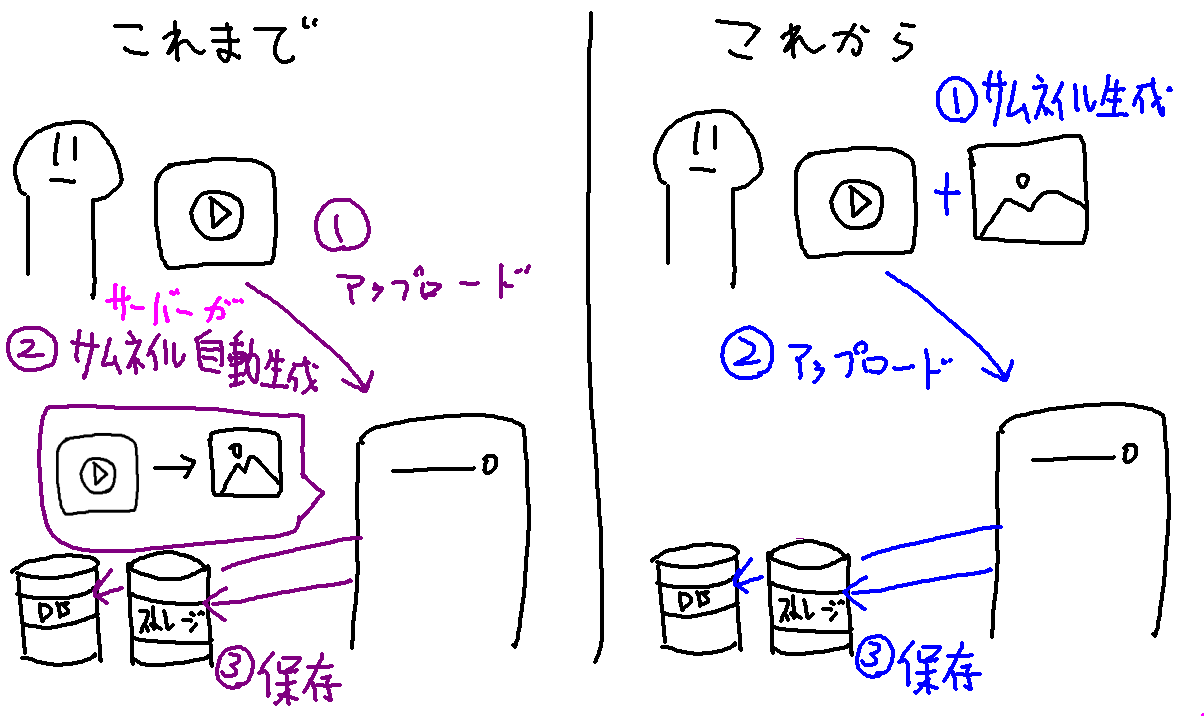 これまで
①
アップロード
サーバーが
② サムネイル自動生成
DB
ストレージ
③保存
これから
①サムネイル生成
② アップロード
DB
ストレージ
③保存